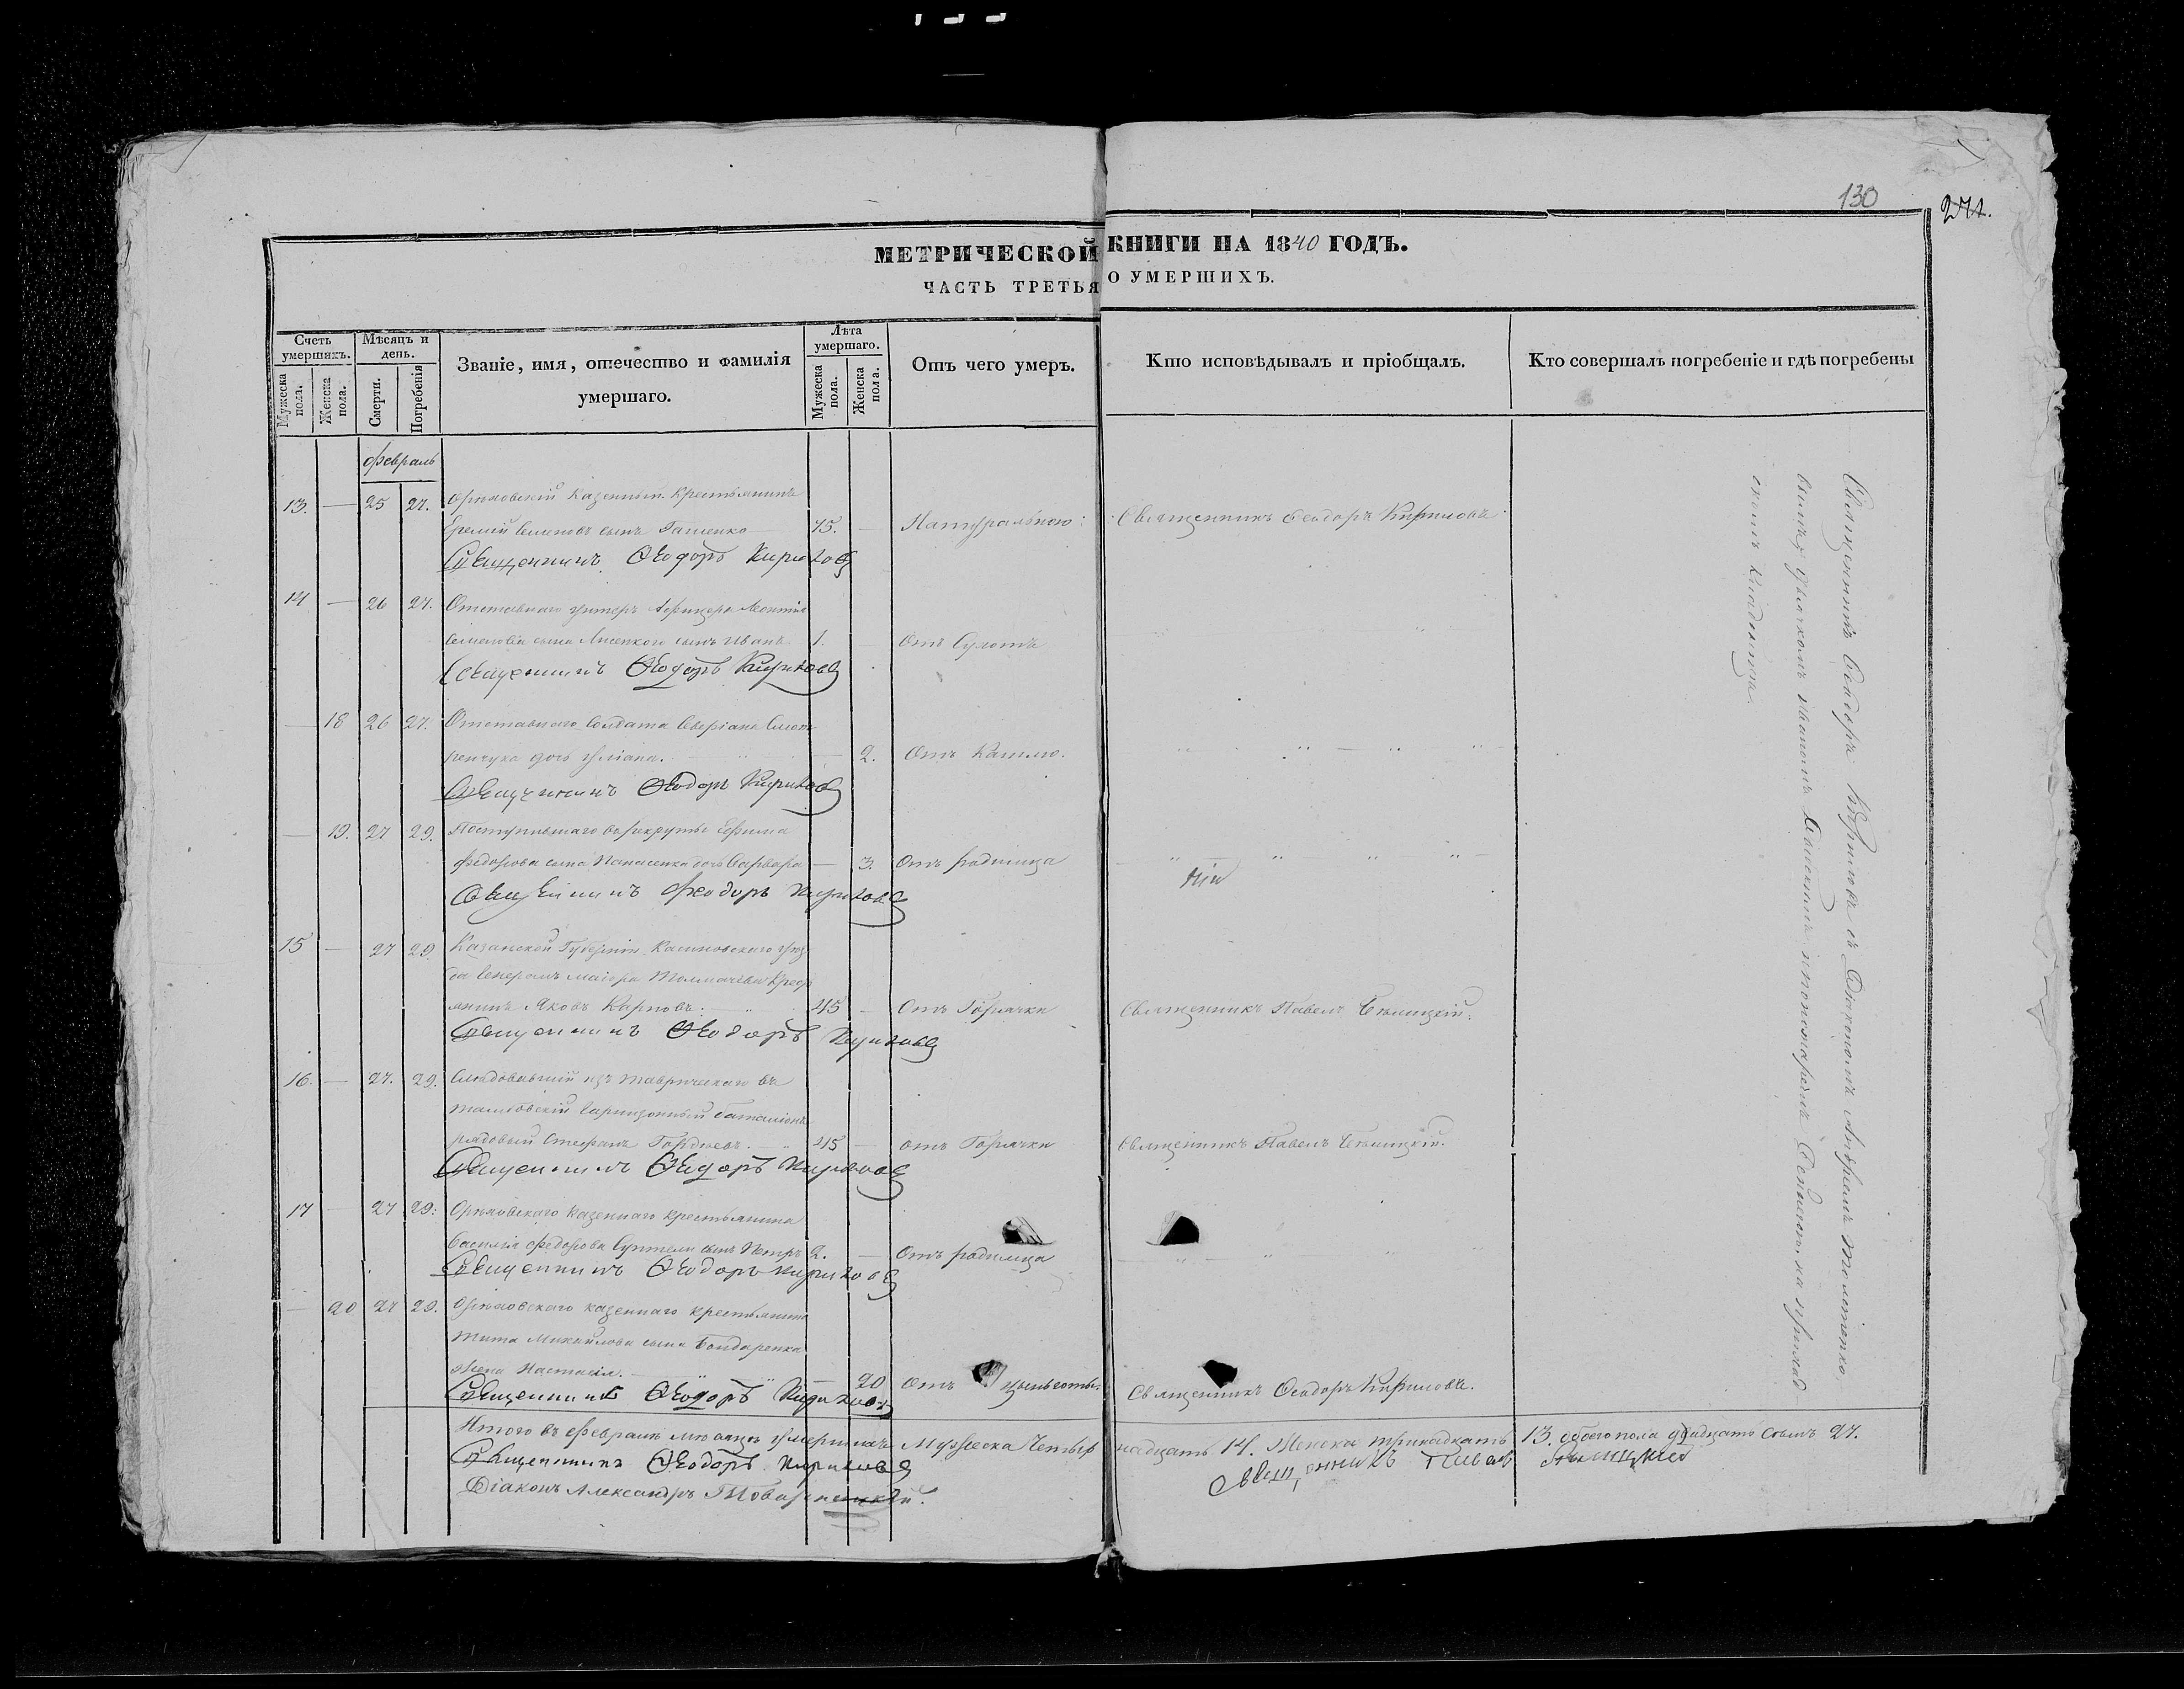 130
271.
МЕТРИЧЕСКОЙ КНИГИ НА 1840 ГОДЪ.
ЧАСТЬ ТРЕТЬЯ О УМЕРШИХЪ.
Счетъ умершихъ.
Мужеска пола.
Женска пола.
Мѣсяцъ и день.
Смерти.
Погребенія
Званіе, имя, отечество и фамилія умершаго.
Лѣта умершаго.
Мужеска пола.
Женска пола.
Отъ чего умеръ.
Кто исповѣдывалъ и пріобщалъ.
Кто совершалъ погребеніе и гдѣ погребены
Февраль
13. — 25 27. Орѣховскій казенный крестьянинъ
Еремій Семеновъ сынъ Гашенко 75. — Натуральною: Священникъ Феодоръ Кириловъ
Священникъ Феодоръ Кириловъ
14 — 26 27. Отставнаго унтеръ Афицера Леонтія
Семенова сына Лисенкого сынъ Иванъ 1. Отъ Сухотъ
Священникъ Феодоръ Кириловъ
— 18 26 27. Отставнаго Солдата Аверіана
дочь Уліана. — 2. Отъ Кашлю.
Священникъ Феодоръ Кириловъ
— 19. 27 29. Поступившаго въ рекруты Ефима
Федорова сына Панасенка дочь Варвара — 3. Отъ родимца
Священникъ Феодоръ Кириловъ
15 — 27 29. Казанской Губерніи Касимовскаго уѣз
да Генералъ маіора Толмачева Крест
янинъ Яковъ Карповъ. 45 — Отъ Горячки Священникъ Павелъ Сѣницкій.
Священникъ Феодоръ Кириловъ
16. — 27. 29. Слѣдовавшій изъ Таврическаго въ
Тамбовскій Гарнизонный баталіонъ
рядовый Стефанъ Гордѣевъ. 45 — отъ Горячки Священникъ Павелъ Сѣницкій.
Священникъ Феодоръ Кириловъ
17 — 27 29. Орѣховскаго казеннаго крестьянина
Василія Федорова сынъ Петръ 2. — Отъ родимца
Священникъ Феодоръ Кириловъ
— 20 27 29. Орѣховскаго казеннаго крестьянина
Тита Михайлова сына Бондаренка
жена Настасія. — 20 Отъ Священникъ Феодоръ Кириловъ.
Священникъ Феодоръ Кириловъ
Священникъ Феодоръ Кириловъ съ Діакономъ
дьячкомъ Иваномъ и пономаремъ на приход
скомъ кладбищѣ.
Итого въ Февралѣ мѣсяцѣ умершихъ Мужеска Четыр надцать 14. Женска тринадцать 13. обоего пола двадцать семь 27.
Священникъ Феодоръ Кириловъ
Священникъ Павелъ Сѣницкій
Діаконъ Александръ